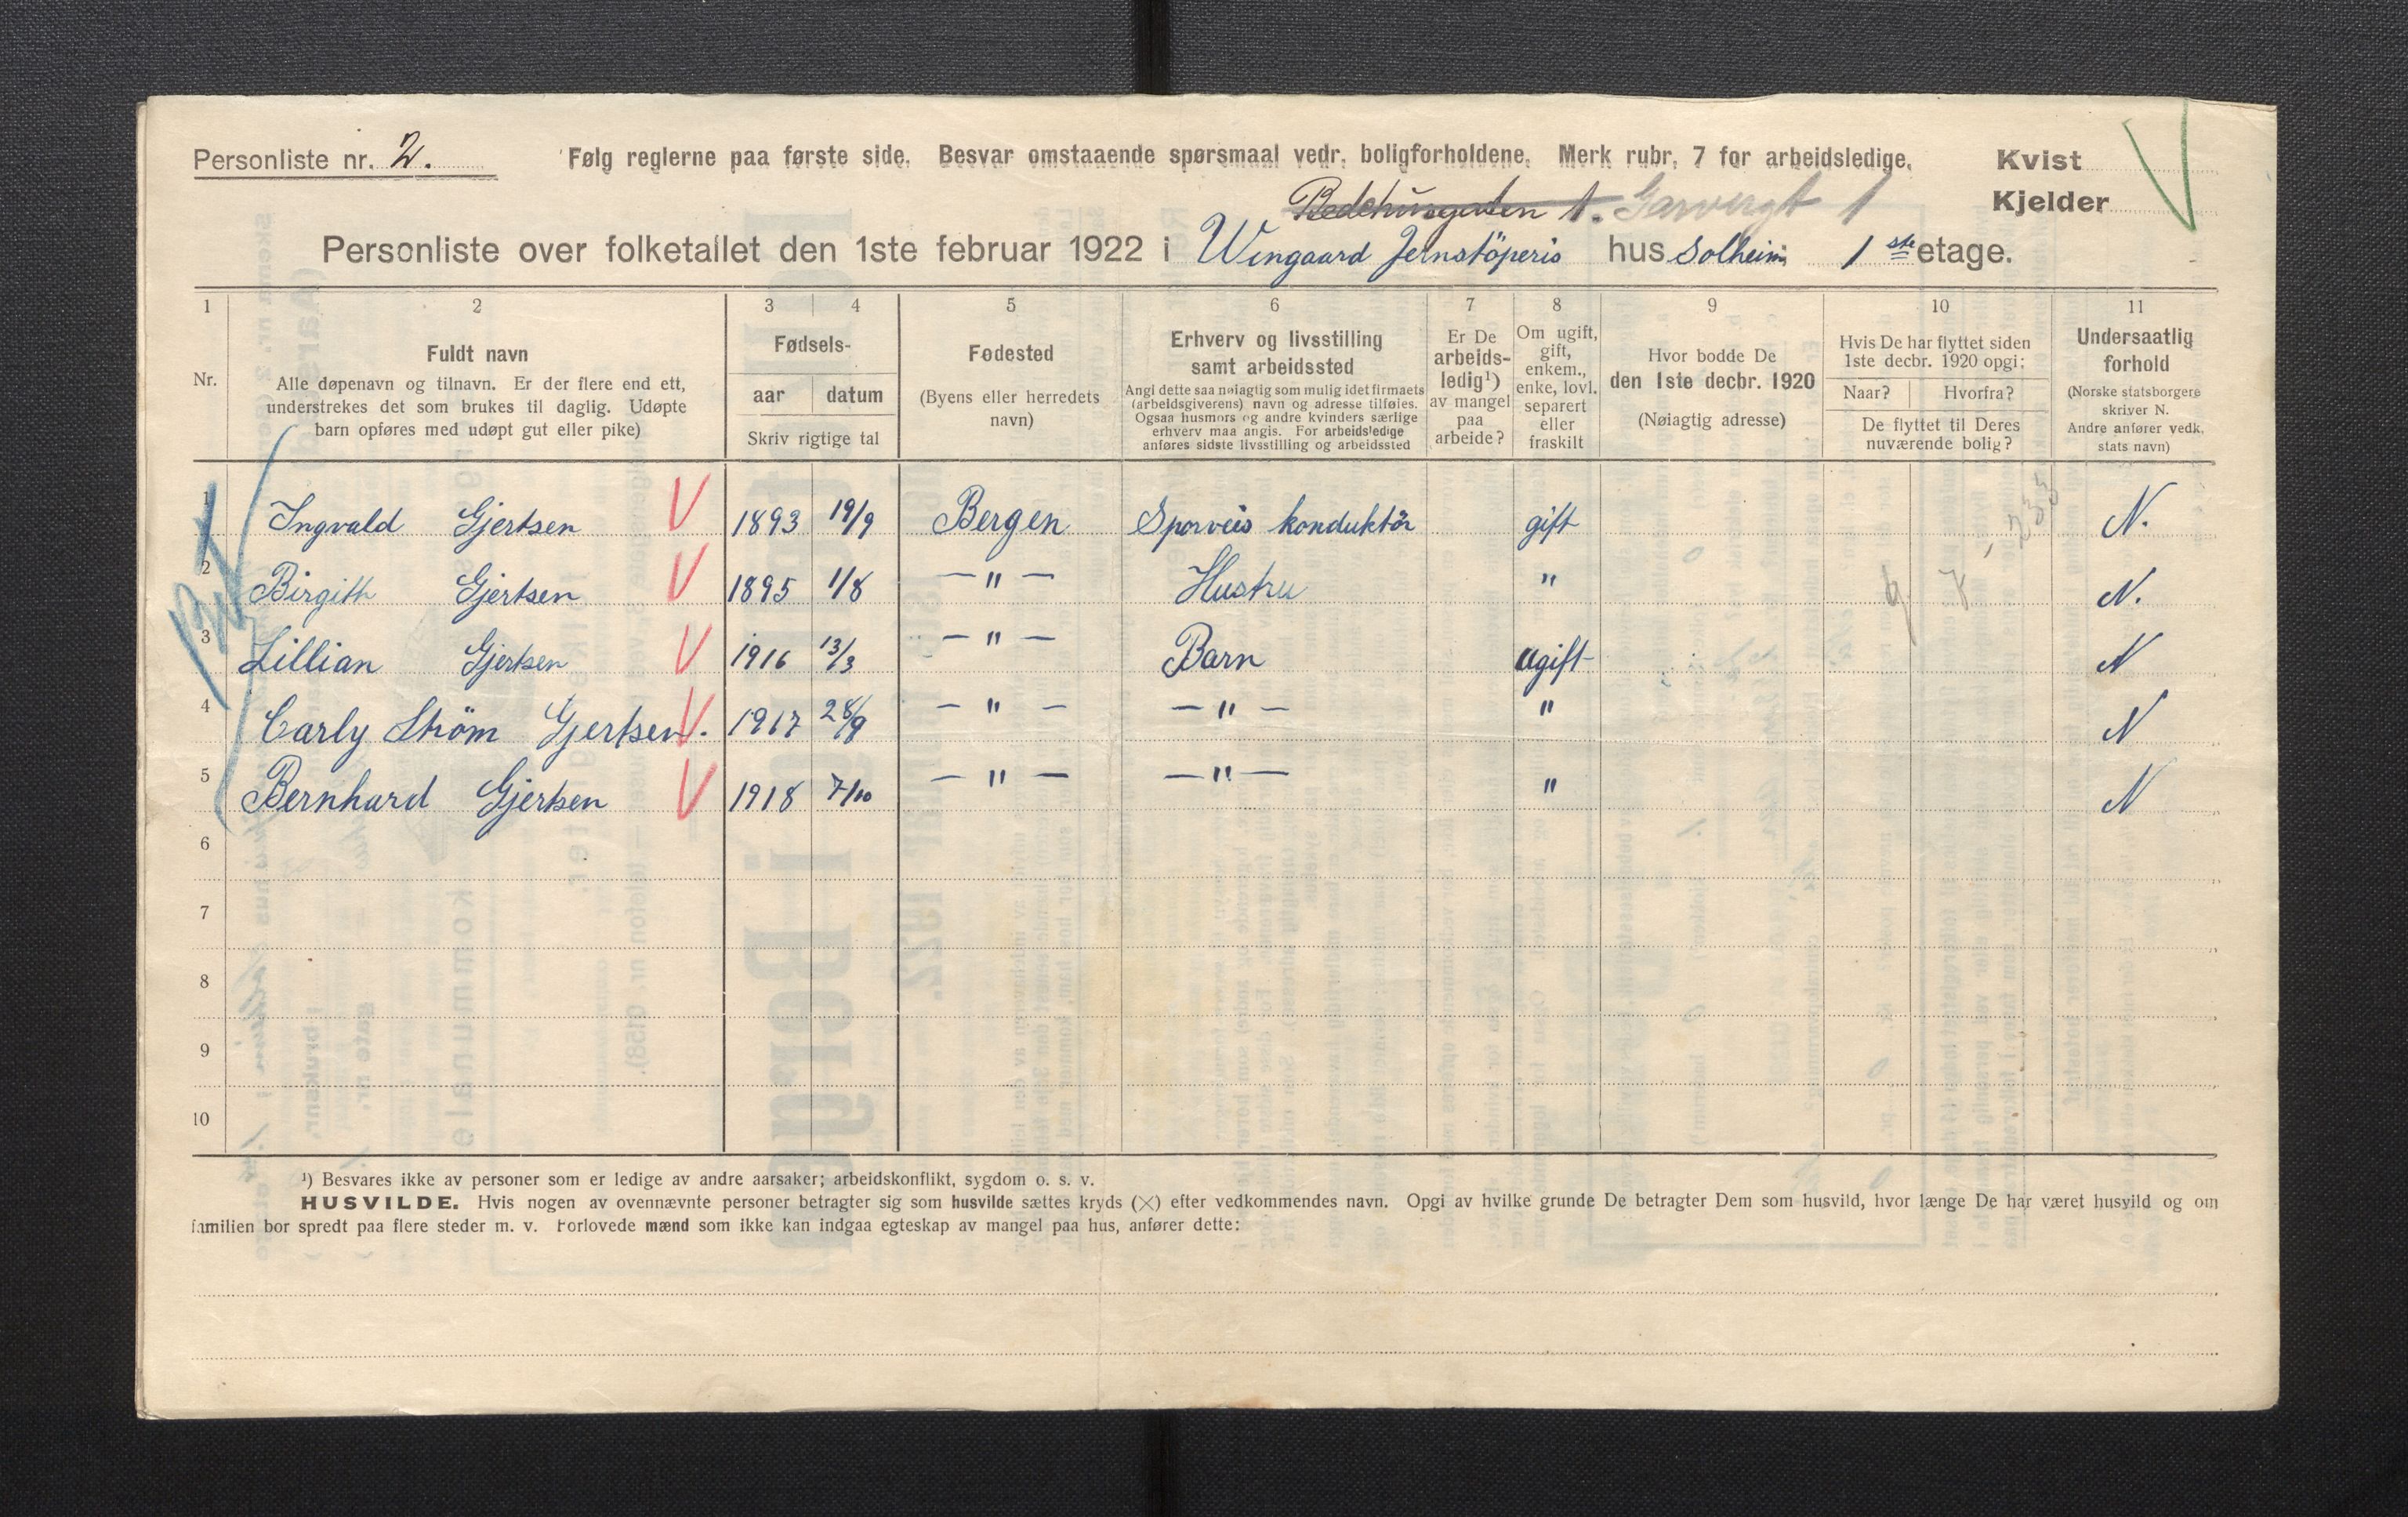 Personliste nr. 2. Følg reglerne paa første side. Besvar omstaaende spørsmaal vedr. boligforholdene. Merk rubr. 7 for arbeidsledige. Kvist
Kjelder
Bedehusgaten 1. Garvergt 1
Personliste over folketallet den 1ste februar 1922 i Wingaard Jernstöperis hus Solheim 1 ste etage.
1 2 3 4 5 6 7 8 9 10 11
Nr.
Fuldt navn
Alle døpenavn og tilnavn. Er der flere end ett,
understrekes det som brukes til daglig. Udøpte
barn opføres med udøpt gut eller pike)
Fødsels-
aar datum
Skriv rigtige tal
Fødested
(Byens eller herredets
navn)
Erhverv og livsstilling
samt arbeidssted
Angi dette saa nøiagtig som mulig idet firmaets
(arbeidsgiverens) navn og adresse tilføies.
Ogsaa husmors og andre kvinders særlige
erhverv maa angis. For arbeidsledige
anføres sidste livsstilling og arbeidssted
Er De
arbeids-
ledig¹)
av mangel
paa
arbeide?
Om ugift,
gift,
enkem.,
enke, lovl.
separert
eller
fraskilt
Hvor bodde De
den 1ste decbr. 1920
(Nøiagtig adresse)
Hvis De har flyttet siden
1ste decbr. 1920 opgi:
Naar? Hvorfra?
De flyttet til Deres
nuværende bolig?
Undersaatlig
forhold
(Norske statsborgere
skriver N.
Andre anfører vedk.
stats navn)
1 Ingvald Gjertsen V 1893 19/9 Bergen Sporveis konduktör gift N.
2 Birgith Gjertsen V 1895 1/8 — " — Hustru " N.
3 Lillian Gjertsen V 1916 13/3 — " — Barn ugift N
4 Carly Ström Gjertsen. V 1917 28/9 — " — — " — " N
5 Bernhard Gjertsen V 1918 7/10 — " — — " — " N
6
7
8
9
10
¹) Besvares ikke av personer som er ledige av andre aarsaker; arbeidskonflikt, sygdom o. s. v.
HUSVILDE. Hvis nogen av ovennævnte personer betragter sig som husvilde sættes kryds (×) efter vedkommendes navn. Opgi av hvilke grunde De betragter Dem som husvild, hvor længe De har været husvild og om
familien bor spredt paa flere steder m. v. Forlovede mænd som ikke kan indgaa egteskap av mangel paa hus, anfører dette: